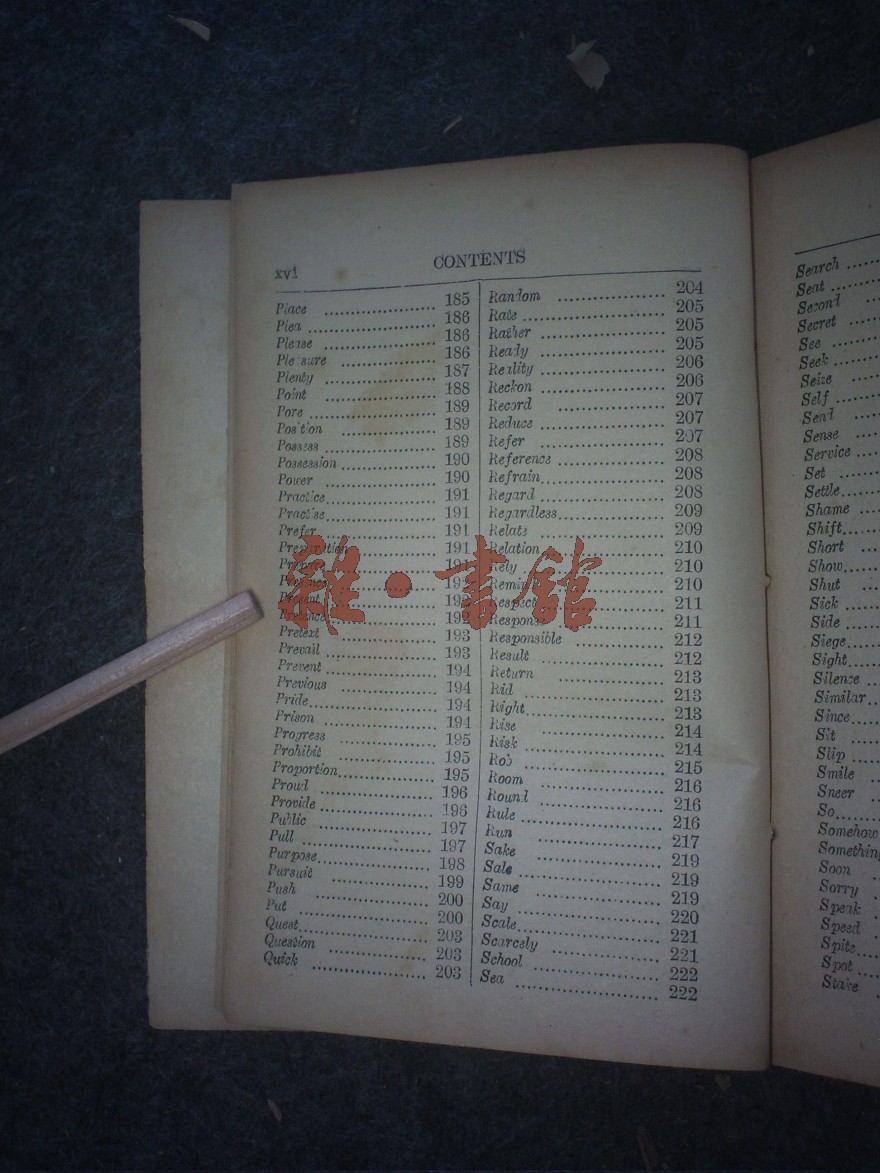 xvi CONTENTS
Place 185
Plea 186
Please 186
Pleasure 186
Plenty 187
Point 188
Pore 189
Position 189
Possess 189
Possession 190
Power 190
Practice 191
Practise 191
Prefer 191
Preparation 191
Presence
Present
Pretence
Pretext 193
Prevail 193
Prevent 194
Previous 194
Pride 194
Prison 194
Progress 195
Prohibit 195
Proportion 195
Proud 196
Provide 196
Public 197
Pull 197
Purpose 198
Pursuit 199
Push 200
Put 200
Quest 203
Question 203
Quick 203
Random 204
Rate 205
Rather 205
Ready 205
Reality 206
Reckon 206
Record 207
Reduce 207
Refer 207
Reference 208
Refrain 208
Regard 208
Regardless 209
Relate 209
Relation 210
Rely 210
Remind 210
Respect 211
Response 211
Responsible 212
Result 212
Return 213
Rid 213
Right 213
Rise 214
Risk 214
Rob 215
Room 216
Round 216
Rule 216
Run 217
Sake 219
Sale 219
Same 219
Say 220
Scale 221
Scarcely 221
School 222
Sea 222
Search
Seat
Second
Secret
See
Seek
Seize
Self
Send
Sense
Service
Set
Settle
Shame
Shift
Short
Show
Shut
Sick
Side
Siege
Sight
Silence
Similar
Since
Sit
Slip
Smile
Sneer
So
Somehow
Something
Soon
Sorry
Speak
Speed
Spite
Spot
Stake
雜·書館